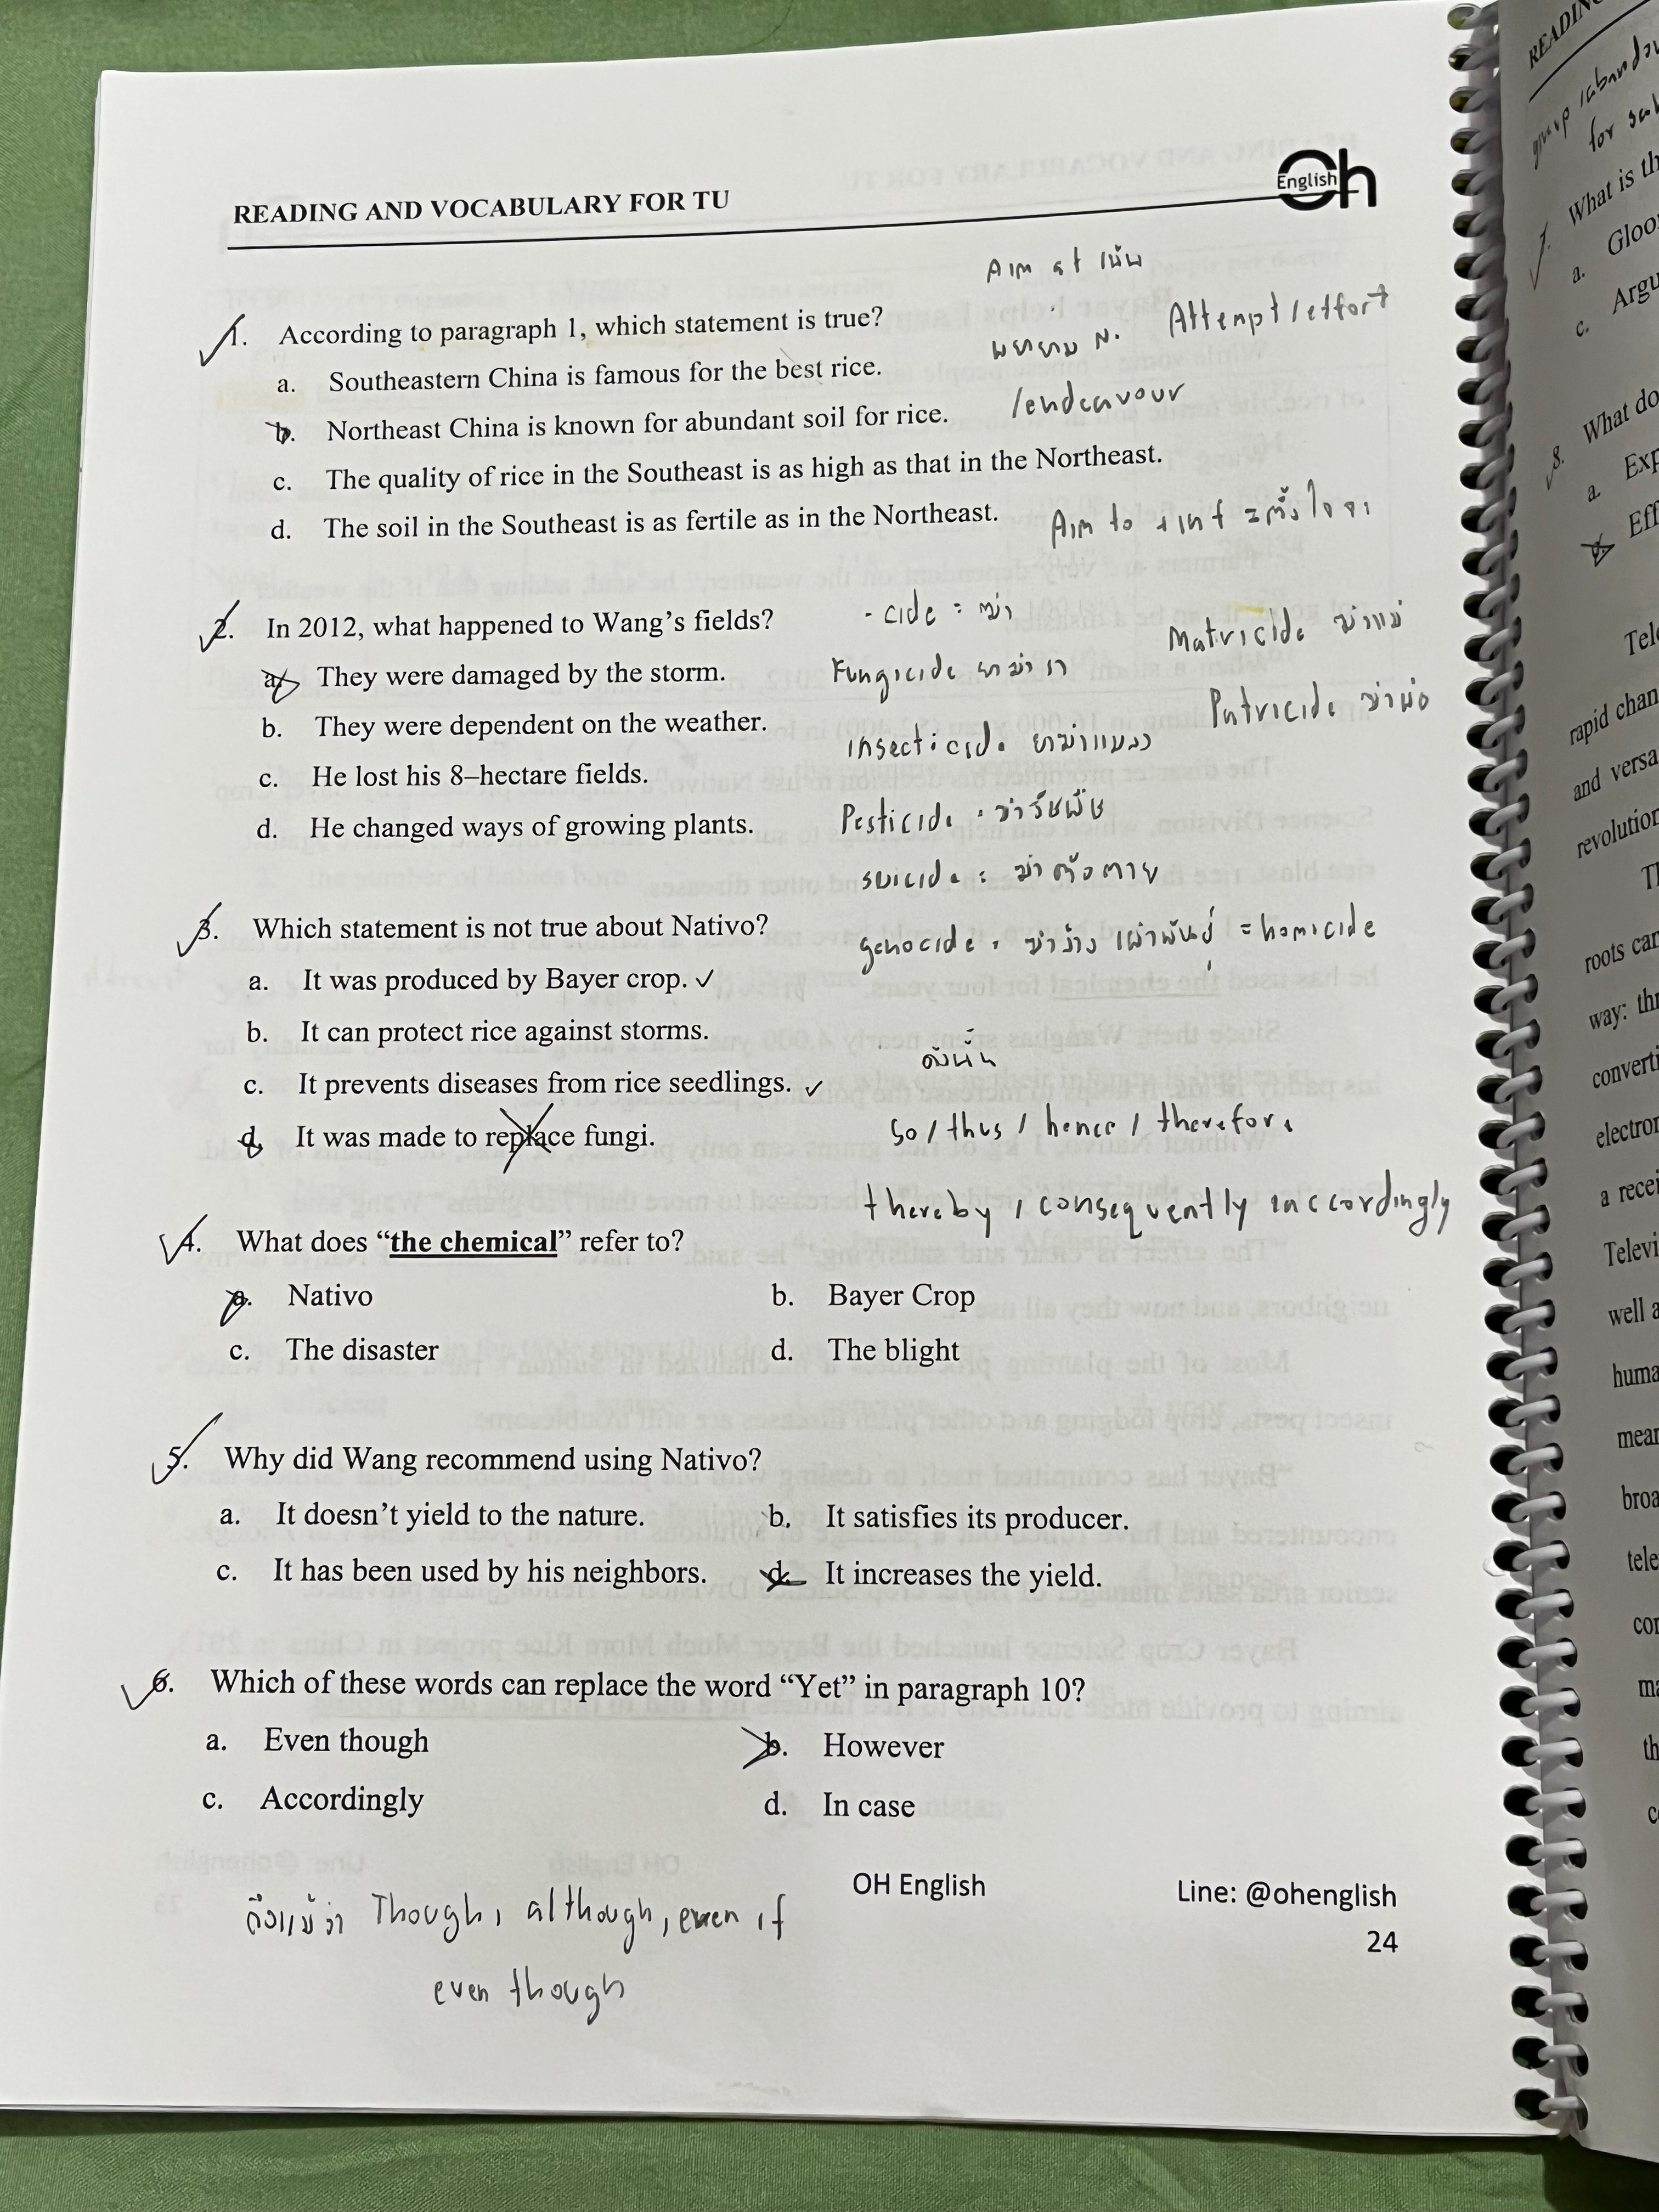 READING AND VOCABULARY FOR TU
English Oh
Aim at เน้น
1. According to paragraph 1, which statement is true?
พยายาม N. Attempt/effort
/endeavour
a. Southeastern China is famous for the best rice.
b. Northeast China is known for abundant soil for rice.
c. The quality of rice in the Southeast is as high as that in the Northeast.
d. The soil in the Southeast is as fertile as in the Northeast.
Aim to + inf = ตั้งใจจะ
2. In 2012, what happened to Wang's fields?
- cide = ฆ่า
Matricide ฆ่าแม่
a. They were damaged by the storm.
Fungicide ยาฆ่ารา
Patricide ฆ่าพ่อ
b. They were dependent on the weather.
insecticide ยาฆ่าแมลง
c. He lost his 8–hectare fields.
d. He changed ways of growing plants.
Pesticide = ฆ่าวัชพืช
suicide = ฆ่าตัวตาย
3. Which statement is not true about Nativo?
genocide = ฆ่าล้างเผ่าพันธุ์ = homicide
a. It was produced by Bayer crop. ✓
b. It can protect rice against storms.
ดังนั้น
c. It prevents diseases from rice seedlings. ✓
d. It was made to replace fungi.
So / thus / hence / therefore
thereby / consequently / accordingly
4. What does "the chemical" refer to?
a. Nativo b. Bayer Crop
c. The disaster d. The blight
5. Why did Wang recommend using Nativo?
a. It doesn't yield to the nature. b. It satisfies its producer.
c. It has been used by his neighbors. d. It increases the yield.
6. Which of these words can replace the word "Yet" in paragraph 10?
a. Even though b. However
c. Accordingly d. In case
OH English Line: @ohenglish
24
ถึงแม้ว่า Though, although, even if
even though
READING
for
7. What is th
a. Gloo
c. Argu
8. What do
a. Exp
Eff
Tele
rapid chan
and versa
revolution
Th
roots can
way: thr
converti
electron
a recei
Televi
well a
huma
mean
broa
tele
con
ma
th
c